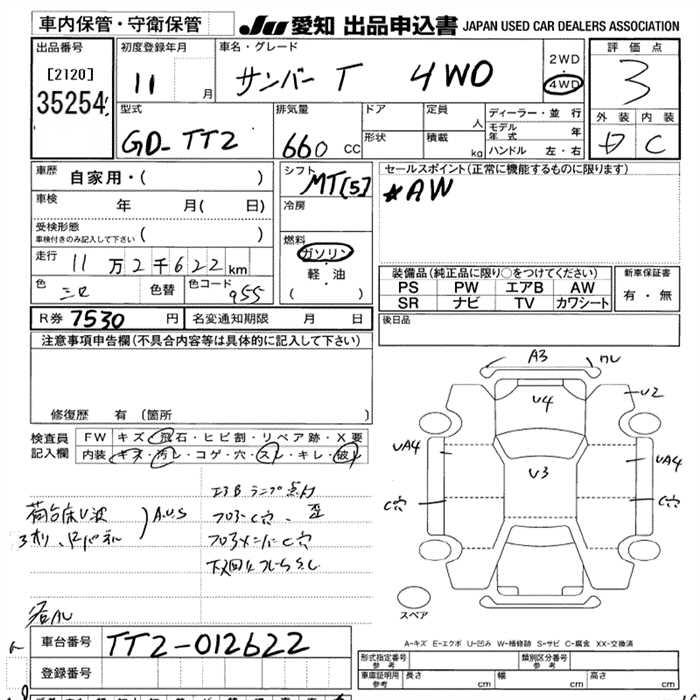 車内保管・守衛保管
JU 愛知 出品申込書 JAPAN USED CAR DEALERS ASSOCIATION
出品番号
[2120]
35254
初度登録年月
11 月
車名・グレード
サンバー T 4WD
2WD
・
4WD
評価点
3
外装 内装
D C
型式
GD-TT2
排気量
660 CC
ドア
形状
定員 人
積載 kg
ディーラー・並行
モデル年式 年
ハンドル 左・右
車歴
自家用・( )
車検 年 月( 日)
受検形態
車検付きのみ記入して下さい ( )
走行 11万2千622km
色
色替
色コード 955
シフト
MT[5]
冷房
燃料
ガソリン
軽・油
( )
セールスポイント(正常に機能するものに限ります)
*AW
装備品(純正品に限り○をつけてください)
PS PW エアB AW
SR ナビ TV カワシート
新車保証書
有・無
R券 7530 円 名変通知期限 月 日
後日品
注意事項申告欄(不具合内容等は具体的に記入して下さい)
修復歴 有 〔箇所 〕
検査員記入欄
FW キズ・飛石・ヒビ割・リペア跡・X要
内装 キズ・汚レ・コゲ・穴・スレ・キレ・破レ
エアBランプ点灯
荷台床U波
A.U.S
フロアC穴、歪
フロアメンバーC穴
A3
U4
U2
UA4
UA4
U3
C穴
C穴
スペア
A-キズ E-エクボ U-凹み W-補修跡 S-サビ C-腐食 XX-交換済
車台番号 TT2-012622
登録番号
形式指定番号 参考
類別区分番号 参考
車庫証明用 参考 長さ cm 幅 cm 高さ cm